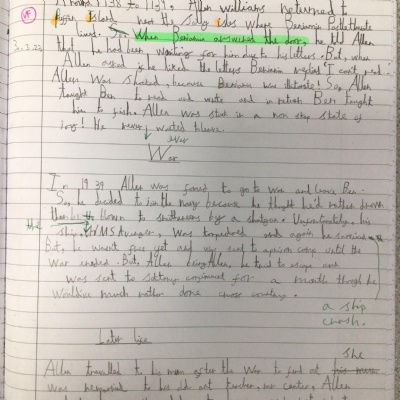 Around 1938 to 1939, Allen Williams returned to
Island near the Sandy isles where Benjamin
lived. So When Benjamin answered the door, he told Allen
that he had been waiting for him due to his letters. But, when
Allen asked if he liked the letters Benjamin replied "I can't read."
Allen was shocked, because Benjamin was illiterate! So, Allen
taught Ben to read and write and in return Ben taught
him to fish. Allen was stuck in a non stop state of
joy! He never wanted to leave.
ever
War
In 1939 Allen was forced to go to War and leave Ben.
So, he decided to join the navy because he thought he'd rather drown
than be blown to by a shotgun. Unfortunately, his
the
ship, HMS was torpedoed and again he survived
But, he wasn't free yet and was sent to a prison camp until the
War ended. But, Allen being Allen, he tried to escape and
was sent to solitary confinement for a month though he
Would've much rather done cross country.
a ship
crash.
Later life
she
Allen travelled to his mum after the War to find out his mum
was married to his old art teacher, Allen